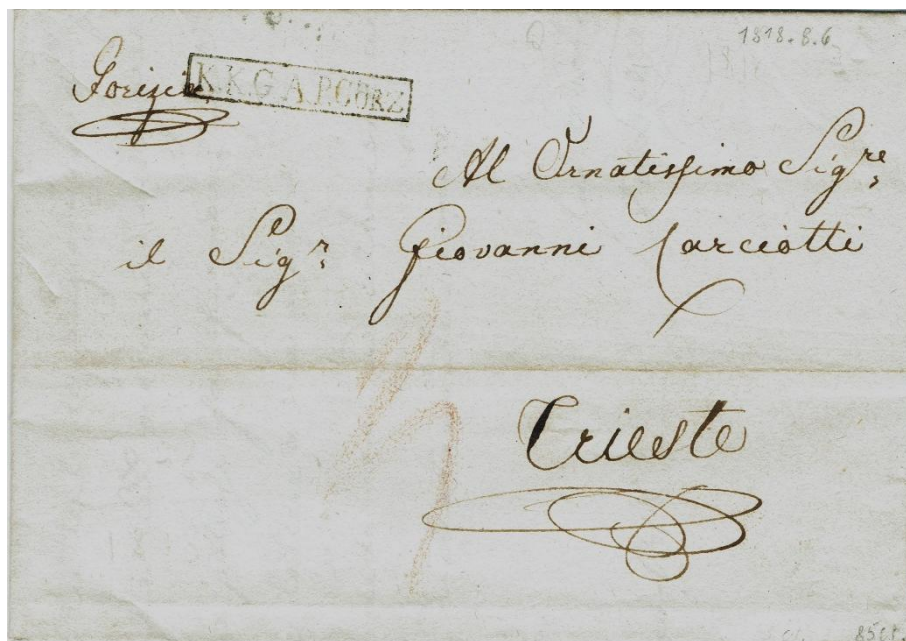 1818.8.6
Gorizia
K.K.G.A.P.GÖRZ
Al Ornatissimo Sig.re
il Sig.r Giovanni Carciotti
Trieste